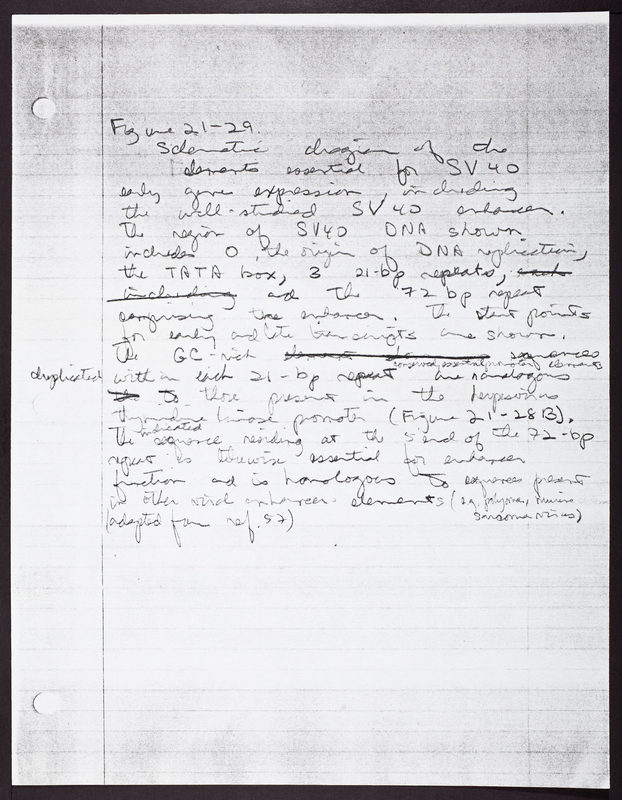 Figure 21-29.
Schematic diagram of the
elements essential for SV40
early gene expression, including
the well-studied SV40 enhancer.
The region of SV40 DNA shown
includes O, the origin of DNA replication,
the TATA box, 3 21-bp repeats, each
including and the 72 bp repeat
comprising the enhancer. The start points
for early and late transcripts are shown.
The GC-rich sequences
conserved, essential promoter elements
duplicated within each 21-bp repeat are homologous
to those present in the herpesvirus
thymidine kinase promoter (Figure 21-28B).
indicated
The sequence residing at the 5' end of the 72-bp
repeat is likewise essential for enhancer
function and is homologous to sequences present
in other viral enhancer elements (e.g. polyoma, murine
sarcoma virus)
(adapted from ref. 57)